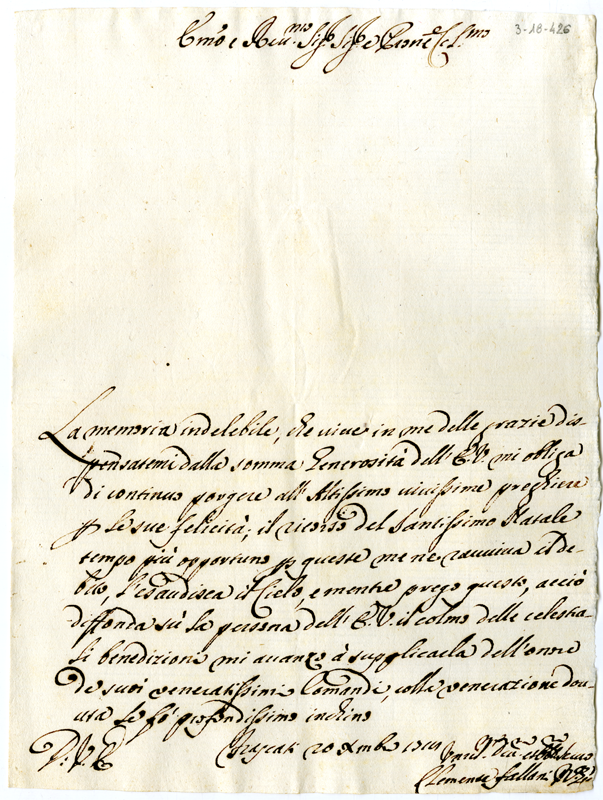 3-18-426
Em͞o e Reu.mo Sig.r Sig.r e Prone Col.mo
La memoria indelebile, che viue in me delle grazie dis-
pensatemi dalla somma Generosità dell'E.V. mi obliga
di continuo porgere all'Altissimo viuissime preghiere
p le sue felicità; il ricorso del Santissimo Natale
tempo più opportuno p queste me ne rauuiua il de-
bito, l'esaudisca il Cielo, e mentre prego questo, acciò
diffonda sù la persona dell'E.V. il colmo delle celestia-
li benedizione mi auanzo à supplicarla dell'onore
de suoi veneratissimi Comandi, colla venerazione dou-
uta le fò profondissimo inchino
D. V. E.
Frascati 20 Xmbre
Clemente Fallani